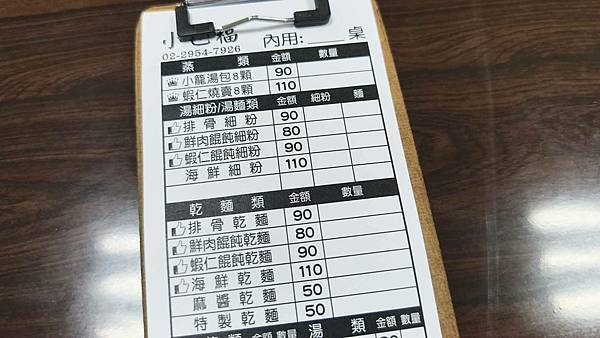 內用: 桌
02-2954-7926
蒸 類 金額 數量
小龍湯包8顆 90
蝦仁燒賣8顆 110
湯細粉/湯麵類 金額 細粉 麵
排骨細粉 90
鮮肉餛飩細粉 80
蝦仁餛飩細粉 90
海鮮細粉 110
乾麵類 金額 數量
排骨乾麵 90
鮮肉餛飩乾麵 80
蝦仁餛飩乾麵 90
海鮮乾麵 110
麻醬乾麵 50
特製乾麵 50
類 金額 數量 湯 類 金額 數量